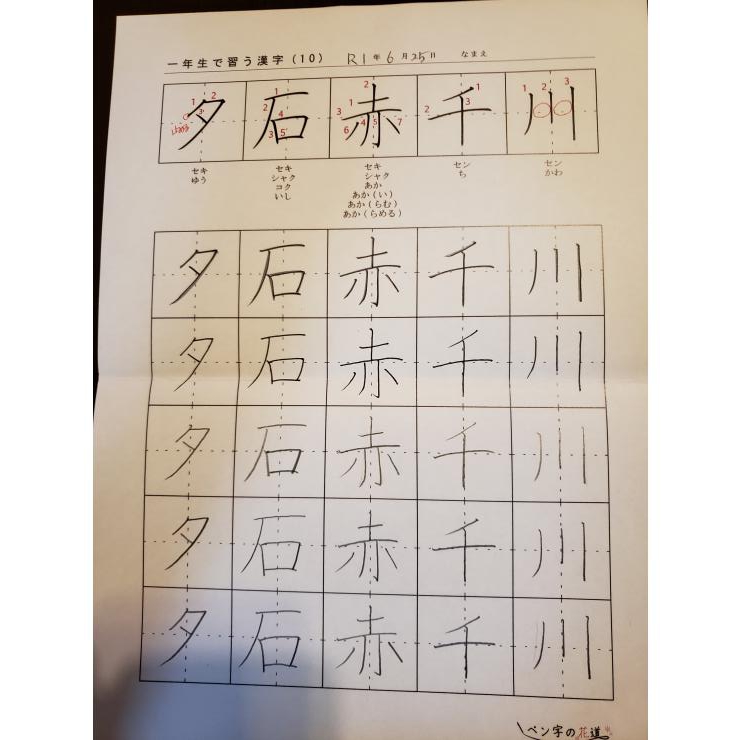 一年生で習う漢字(10) R1年6月25日 なまえ
夕 石 赤 千 川
セキ セキ セキ セン セン
ゆう シャク シャク ち かわ
コク あか
いし あか(い)
あか(らむ)
あか(らめる)
夕 石 赤 千 川
夕 石 赤 千 川
夕 石 赤 千 川
夕 石 赤 千 川
夕 石 赤 千 川
ペン字の花道